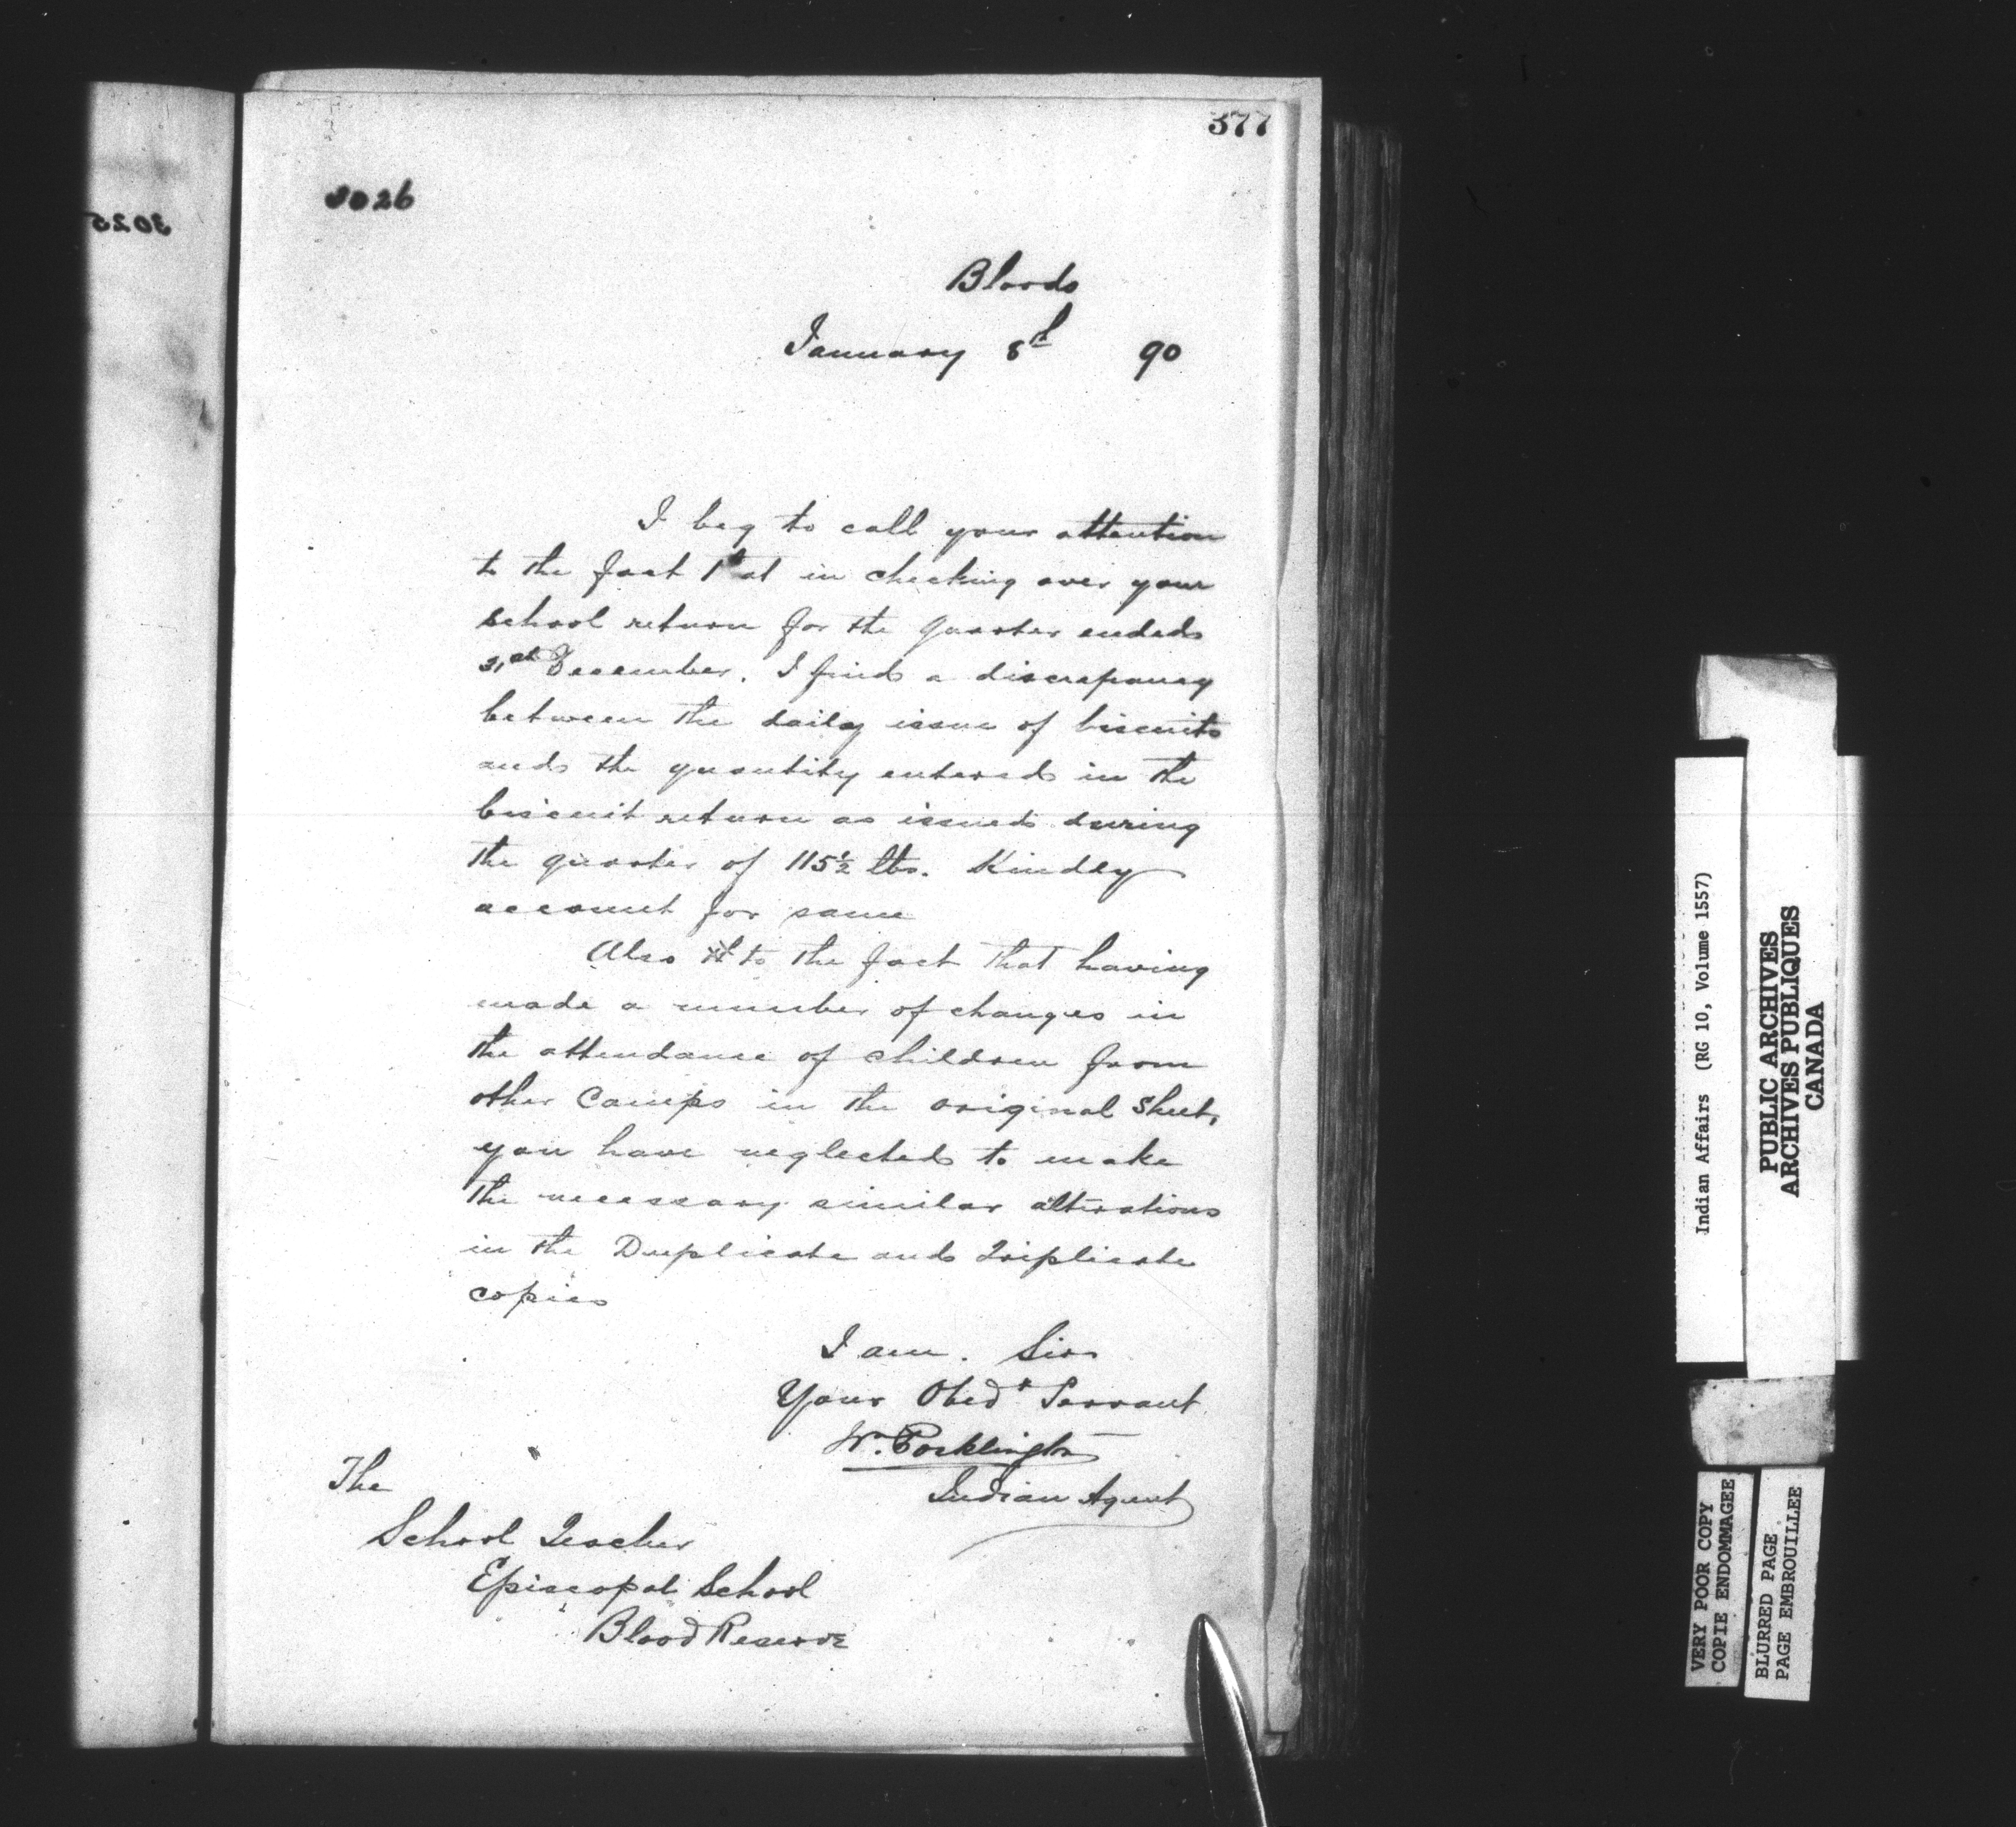 377
3026
3025
Bloods
January 8th 90
I beg to call your attention
to the fact that in checking over your
school return for the quarter ended
31st December. I find a discrepancy
between the daily issue of biscuits
and the quantity entered in the
biscuit return as issued during
the quarter of 115½ lbs. Kindly
account for same
Also to the fact that having
made a number of changes in
the attendance of children from
other Camps in the original Sheet,
you have neglected to make
the necessary similar alterations
in the Duplicate and Triplicate
copies
I am. Sir
Your Obedt Servant
W. Pocklington
Indian Agent
The
School Teacher
Episcopal School
Blood Reserve
Indian Affairs (RG 10, Volume 1557)
PUBLIC ARCHIVES
ARCHIVES PUBLIQUES
CANADA
VERY POOR COPY
COPIE ENDOMMAGEE
BLURRED PAGE
PAGE EMBROUILLEE